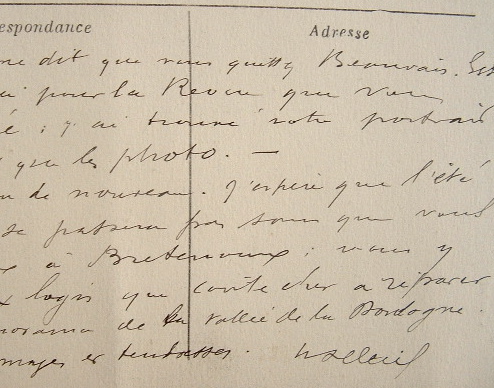 espondance
Adresse
me dit que vous quittez Beauvais. Est
pour la Revue que vous
é ; j'y ai trouvé votre portrait
que les photo. —
de nouveau. J'espère que l'été
se passera pas sans que vous
à Bretenoux ; vous y
logis qui coûte cher à réparer
norama de la vallée de la Dordogne.
mages et tendresses.